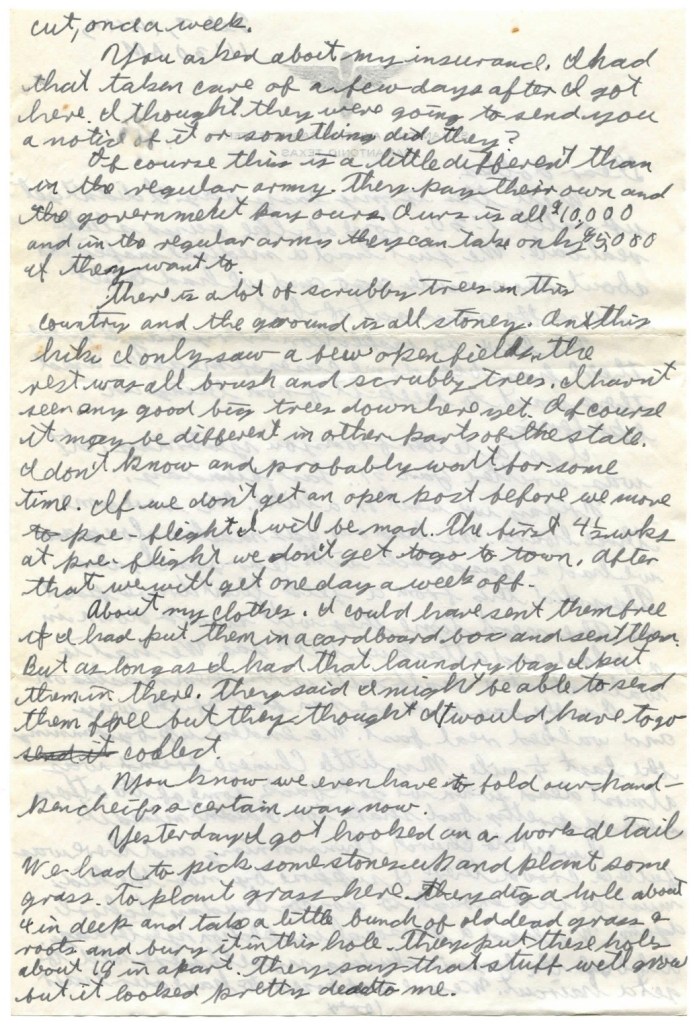 cut, once a week.
You asked about my insurance. I had
that taken care of a few days after I got
here. I thought they were going to send you
a notice of it or something did they?
Of course this is a little different than
in the regular army. They pay their own and
the government pays ours. Ours is all $10,000
and in the regular army they can take only $5,000
if they want to.
There is a lot of scrubby trees in this
country and the ground is all stoney. On this
hike I only saw a few open fields, the
rest was all brush and scrubby trees. I havn't
seen any good big trees down here yet. Of course
it may be different in other parts of the state.
I don't know and probably won't for some
time. If we don't get an open post before we move
to pre-flight I will be mad. The first 4½ wks
at pre-flight we don't get to go to town, after
that we will get one day a week off.
About my clothes. I could have sent them free
if I had put them in a cardboard box and sent them.
But as long as I had that laundry bag I put
them in there. They said I might be able to send
them free but they thought it would have to go
send it collect.
You know we even have to fold our hand-
kercheifs a certain way now.
Yesterday I got hooked on a work detail
We had to pick some stones up and plant some
grass. To plant grass here they dig a hole about
4 in deep and take a little bunch of old dead grass &
roots and bury it in this hole. They put these holes
about 18 in apart. They say that stuff will grow
but it looked pretty dead to me.
SAN ANTONIO, TEXAS